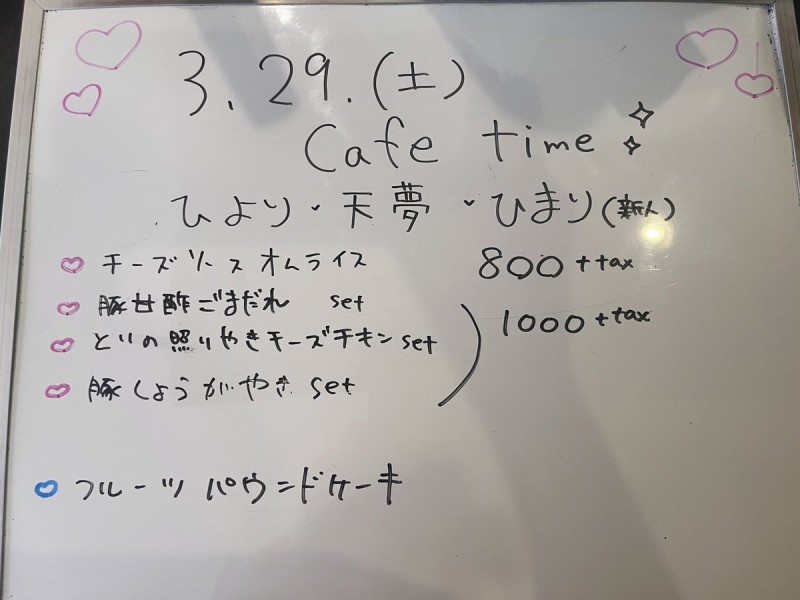 3.29.(土)
Cafe time
ひより・天夢・ひまり(新人)
チーズソースオムライス 800+tax
豚甘酢ごまだれ set
とりの照りやきチーズチキン set
豚しょうがやき set
1000+tax
フルーツパウンドケーキ